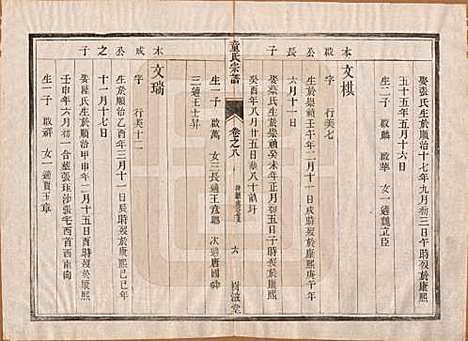 娶張氏生於順治十七年九月初三日午時歿於康熙
五十五年五月十六日
生二子 啟麟 啟華 女一適魏立臣
本 文棋
啟 字 行美七
公 生於崇禎壬午年二月十一日戌時歿於康熙
長 六月十一日
子 娶葉氏生於崇禎癸未年正月 日子時歿於康熙
癸酉年八月廿五日葬八十 圩
童氏宗譜
卷之八
六
生一子 啟萬 女三長適王 次適唐國
三適王士昇
木 文瑞
成 字 行美十二
公 生於順治乙酉年三月十一日辰時歿於康熙己巳年
之 十一月十七日
子 娶陳氏生於順治甲申年二月十五日酉時歿於康熙
壬申年六月初一合葬張珠沙張宅西首西南向
生一子 啟賢 女一適賈玉章